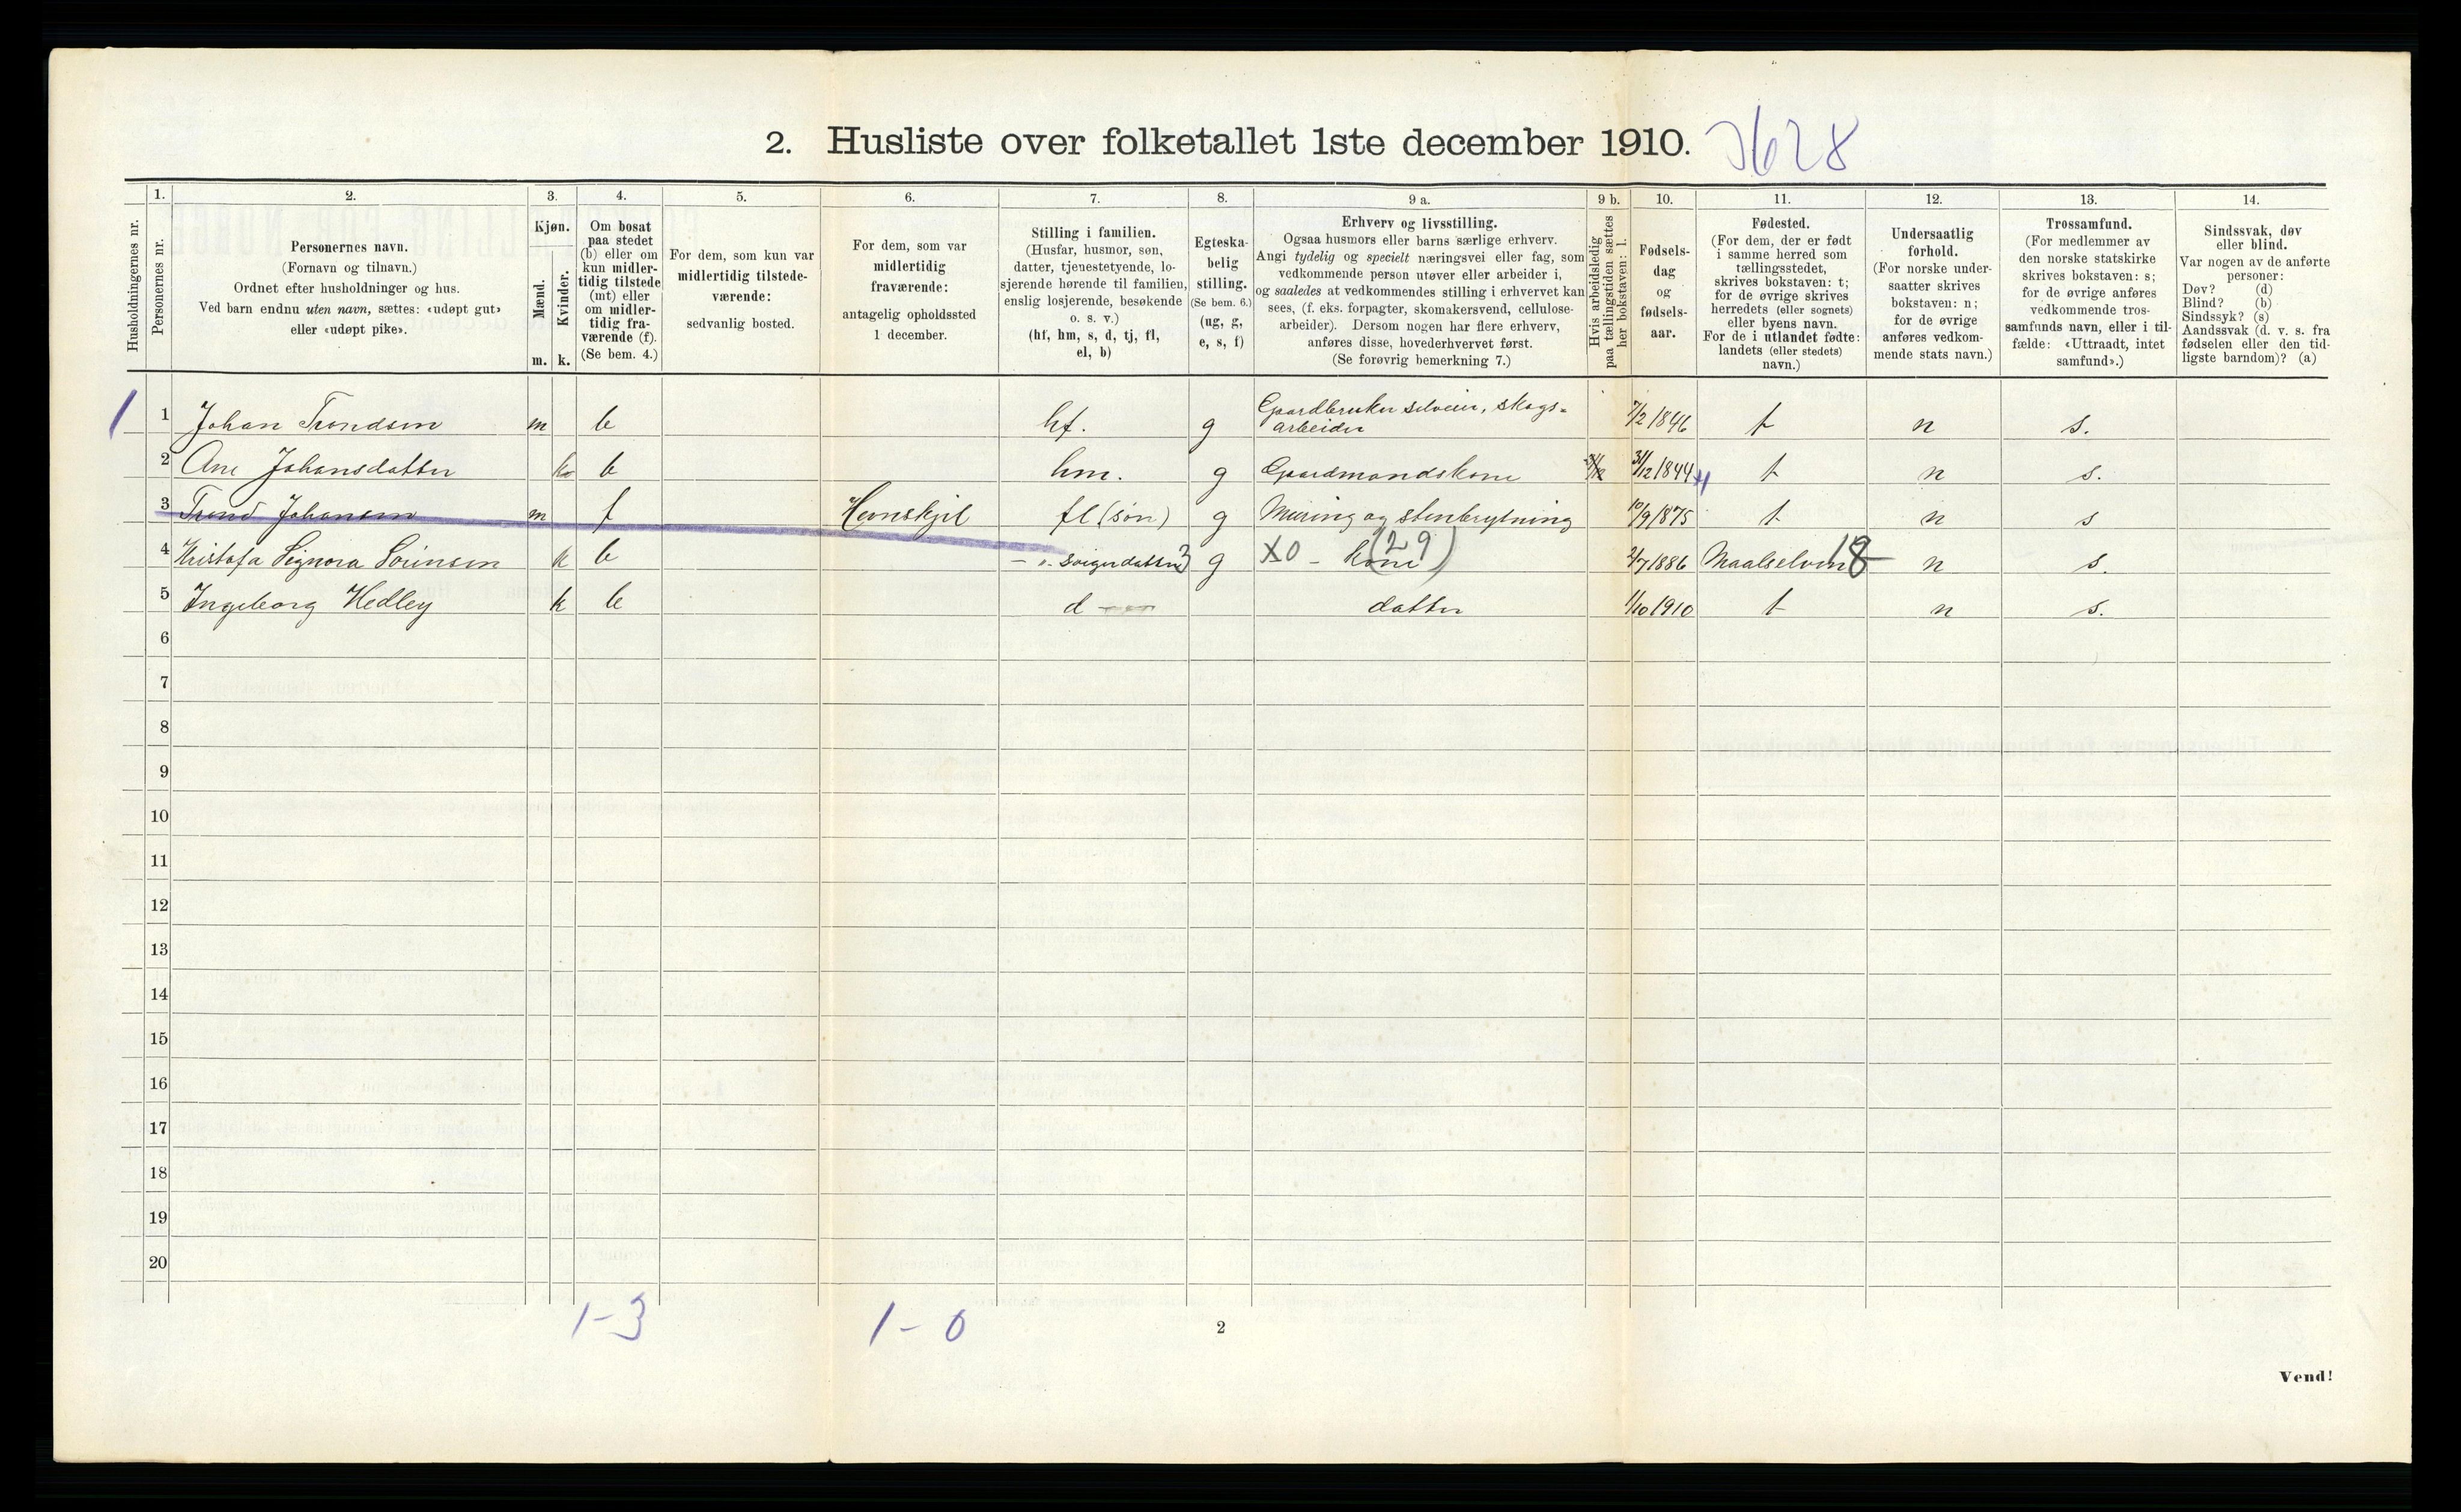 2. Husliste over folketallet 1ste december 1910. 3628
Husholdningernes nr.
1.
Personernes nr.
2.
Personernes navn.
(Fornavn og tilnavn.)
Ordnet efter husholdninger og hus.
Ved barn endnu uten navn, sættes: «udøpt gut»
eller «udøpt pike».
3.
Kjøn.
Mænd.
Kvinder.
m. k.
4.
Om bosat
paa stedet
(b) eller om
kun midler-
tidig tilstede
(mt) eller
om midler-
tidig fra-
værende (f).
(Se bem. 4.)
5.
For dem, som kun var
midlertidig tilstede-
værende:
sedvanlig bosted.
6.
For dem, som var
midlertidig
fraværende:
antagelig opholdssted
1 december.
7.
Stilling i familien.
(Husfar, husmor, søn,
datter, tjenestetyende, lo-
sjerende hørende til familien,
enslig losjerende, besøkende
o. s. v.)
(hf, hm, s, d, tj, fl,
el, b)
8.
Egteska-
belig
stilling.
(Se bem. 6.)
(ug, g,
e, s, f)
9 a.
Erhverv og livsstilling.
Ogsaa husmors eller barns særlige erhverv.
Angi tydelig og specielt næringsvei eller fag, som
vedkommende person utøver eller arbeider i,
og saaledes at vedkommendes stilling i erhvervet kan
sees, (f. eks. forpagter, skomakersvend, cellulose-
arbeider). Dersom nogen har flere erhverv,
anføres disse, hovederhvervet først.
(Se forøvrig bemerkning 7.)
9 b.
Hvis arbeidsledig
paa tællingstiden sættes
her bokstaven: l.
10.
Fødsels-
dag
og
fødsels-
aar.
11.
Fødested.
(For dem, der er født
i samme herred som
tællingsstedet,
skrives bokstaven: t;
for de øvrige skrives
herredets (eller sognets)
eller byens navn.
For de i utlandet fødte:
landets (eller stedets)
navn.)
12.
Undersaatlig
forhold.
(For norske under-
saatter skrives
bokstaven: n;
for de øvrige
anføres vedkom-
mende stats navn.)
13.
Trossamfund.
(For medlemmer av
den norske statskirke
skrives bokstaven: s;
for de øvrige anføres
vedkommende tros-
samfunds navn, eller i til-
fælde: «Uttraadt, intet
samfund».)
14.
Sindssvak, døv
eller blind.
Var nogen av de anførte
personer:
Døv? (d)
Blind? (b)
Sindssyk? (s)
Aandssvak (d. v. s. fra
fødselen eller den tid-
ligste barndom)? (a)
1 1 Johan Trondsen m b hf. g Gaardbruker selveier, skogs-
arbeider 7/2 1846 t n s.
2 Ane Johansdatter k b hm. g Gaardmandskone 31/12 1844 t n s.
3 Trond Johansen m f fl (søn) g Muring og stenbrytning 10/9 1875 t n s
4 Kristofa Signora Sørensen k b - " - svigerdatter 3 g X0 - kone (29) 2/7 1886 Maalselven 18 n s.
5 Ingeborg Hedley k b d datter 1/10 1910 t n s.
6
7
8
9
10
11
12
13
14
15
16
17
18
19
20
1-3 1-0
2
Vend!